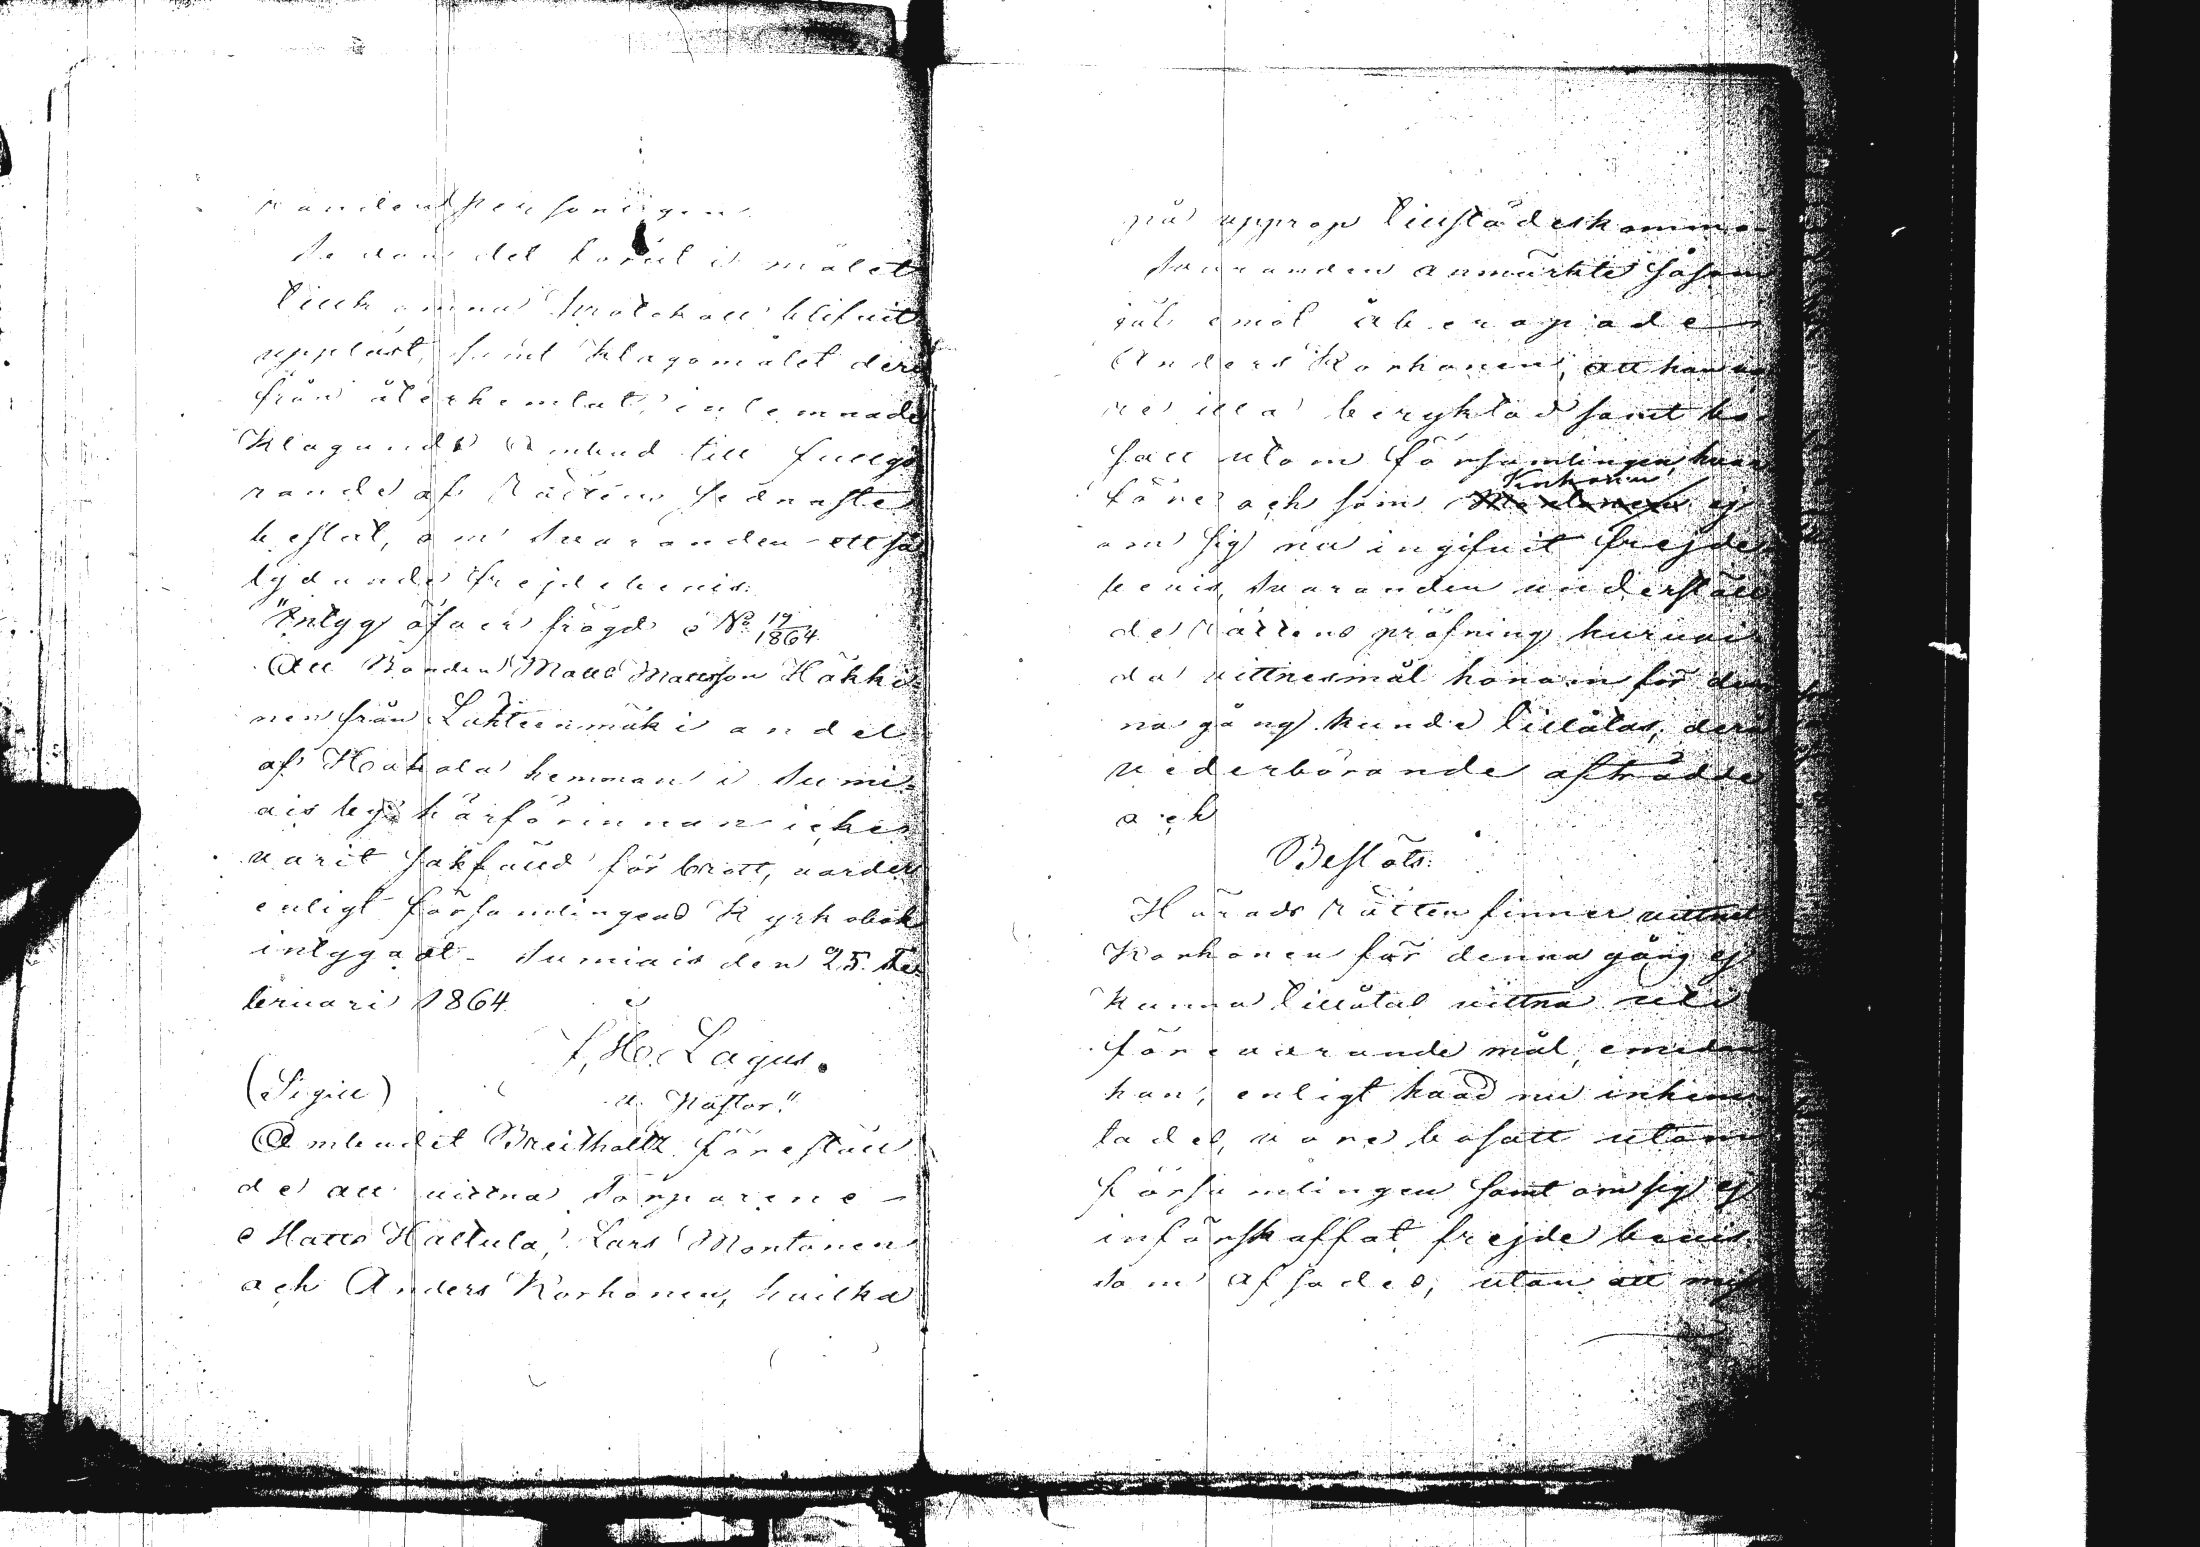 randen personligen.
Sedan det förut i målet
tillkomna Protokoll blifvit
uppläst, samt Klagomålet der
från återhemtat, inlemnade
Klagande Ombud till fullgö
rande af Rättens sednaste
beslut, om Svaranden ett så
lydande frejdebevis:
"Intyg öfver frägd № 19/1864
Att Bonden Matts Mattsson Häkki-
nen från Lahteenmäki andel
af Haukala hemman i Sumi-
ais by härförinnan icke
varit sakfälld för brott, varder
enligt församlingens Kyrkobok
intygadt. Sumiais den 25. Fe
bruari 1864.
H. Lagus.
(Sigill) v. Pastor."
Ombudet Breitholtz förestäld
de att vittna Torparene
Matts Hattula, Lars Montonen
och Anders Korhonen, hvilka
på upprop tillstädeskommo
Svaranden anmärkte såsom
jäf emot åberopade
Anders Korhonen, att han va
re illa beryktad samt bo
satt utom församlingen, hvar
före och som Korhonen ej
om sig nu ingifvit frejde
bevis, Svaranden underställ
de Rättens pröfning huruvi
da vittnesmål honom för den
na gång kunde tillåtas, der
vederbörande afträdde
och
Beslöts:
Härads Rätten finner vittnet
Korhonen för denna gång ej
kunna tillåtas vittna uti
förevarande mål, emedan
han, enligt hvad nu inhem
tades, vore bosatt utom
församlingen samt om sig ej
införskaffat frejde bevis.
Som afsades, utan att